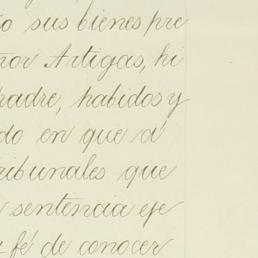 o sus bienes pre
nor Artigas, hi
padre, habidos y
do en que á
ribunales que
sentencia eje
fé de conocer